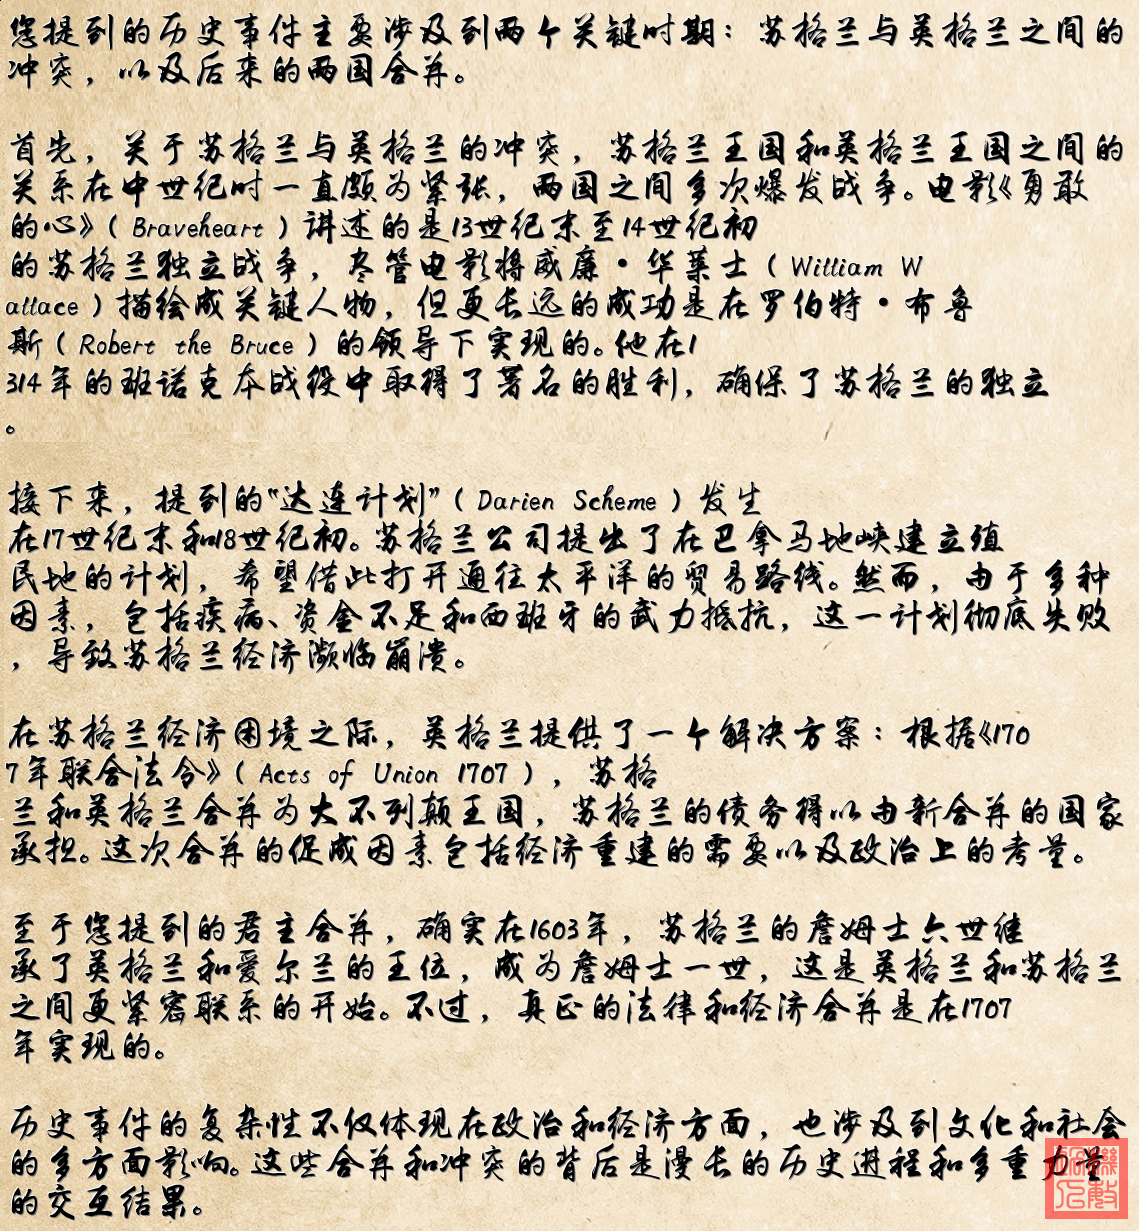 您提到的历史事件主要涉及到两个关键时期：苏格兰与英格兰之间的
冲突，以及后来的两国合并。
首先，关于苏格兰与英格兰的冲突，苏格兰王国和英格兰王国之间的
关系在中世纪时一直颇为紧张，两国之间多次爆发战争。电影《勇敢
的心》（Braveheart）讲述的是13世纪末至14世纪初
的苏格兰独立战争，尽管电影将威廉·华莱士（William W
allace）描绘成关键人物，但更长远的成功是在罗伯特·布鲁
斯（Robert the Bruce）的领导下实现的。他在1
314年的班诺克本战役中取得了著名的胜利，确保了苏格兰的独立
。
接下来，提到的“达连计划”（Darien Scheme）发生
在17世纪末和18世纪初。苏格兰公司提出了在巴拿马地峡建立殖
民地的计划，希望借此打开通往太平洋的贸易路线。然而，由于多种
因素，包括疾病、资金不足和西班牙的武力抵抗，这一计划彻底失败
，导致苏格兰经济濒临崩溃。
在苏格兰经济困境之际，英格兰提供了一个解决方案：根据《170
7年联合法令》（Acts of Union 1707），苏格
兰和英格兰合并为大不列颠王国，苏格兰的债务得以由新合并的国家
承担。这次合并的促成因素包括经济重建的需要以及政治上的考量。
至于您提到的君主合并，确实在1603年，苏格兰的詹姆士六世继
承了英格兰和爱尔兰的王位，成为詹姆士一世，这是英格兰和苏格兰
之间更紧密联系的开始。不过，真正的法律和经济合并是在1707
年实现的。
历史事件的复杂性不仅体现在政治和经济方面，也涉及到文化和社会
的多方面影响。这些合并和冲突的背后是漫长的历史进程和多重力量
的交互结果。